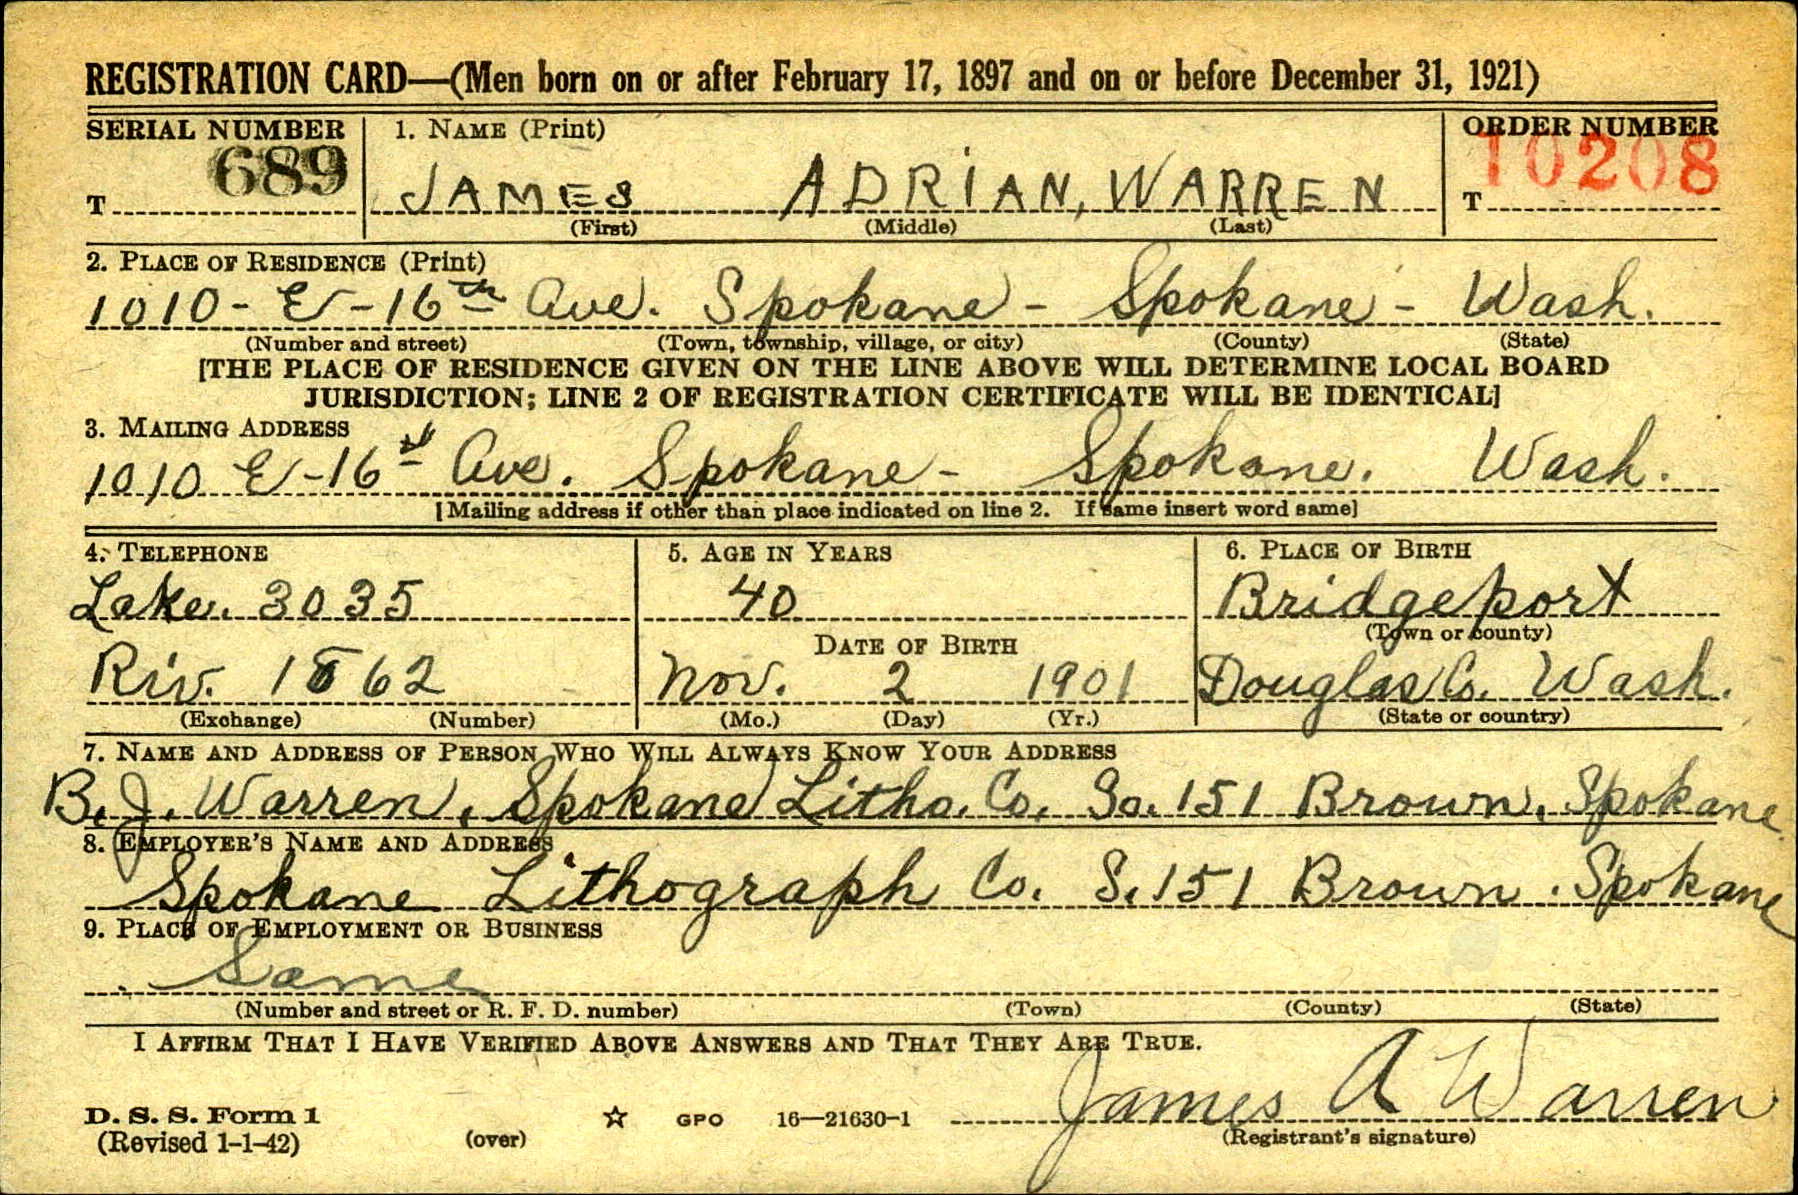 REGISTRATION CARD—(Men born on or after February 17, 1897 and on or before December 31, 1921)
SERIAL NUMBER 1. NAME (Print) ORDER NUMBER
T 689 JAMES ADRIAN, WARREN T 10208
(First) (Middle) (Last)
2. PLACE OF RESIDENCE (Print)
1010 - E - 16th Ave. Spokane - Spokane - Wash.
(Number and street) (Town, township, village, or city) (County) (State)
[THE PLACE OF RESIDENCE GIVEN ON THE LINE ABOVE WILL DETERMINE LOCAL BOARD
JURISDICTION; LINE 2 OF REGISTRATION CERTIFICATE WILL BE IDENTICAL]
3. MAILING ADDRESS
1010 E - 16th Ave. Spokane - Spokane. Wash.
[Mailing address if other than place indicated on line 2. If same insert word same]
4. TELEPHONE 5. AGE IN YEARS 6. PLACE OF BIRTH
Lake. 3035 40 Bridgeport
DATE OF BIRTH (Town or county)
Riv. 62 Nov. 2 1901 Douglas Co. Wash.
(Exchange) (Number) (Mo.) (Day) (Yr.) (State or country)
7. NAME AND ADDRESS OF PERSON WHO WILL ALWAYS KNOW YOUR ADDRESS
B. J. Warren, Spokane Litho. Co. So. 151 Brown, Spokane
8. EMPLOYER'S NAME AND ADDRESS
Spokane Lithograph Co. S. 151 Brown. Spokane
9. PLACE OF EMPLOYMENT OR BUSINESS
Same
(Number and street or R. F. D. number) (Town) (County) (State)
I AFFIRM THAT I HAVE VERIFIED ABOVE ANSWERS AND THAT THEY ARE TRUE.
James A Warren
D. S. S. Form 1 ☆ GPO 16—21630-1
(Revised 1-1-42) (over) (Registrant's signature)